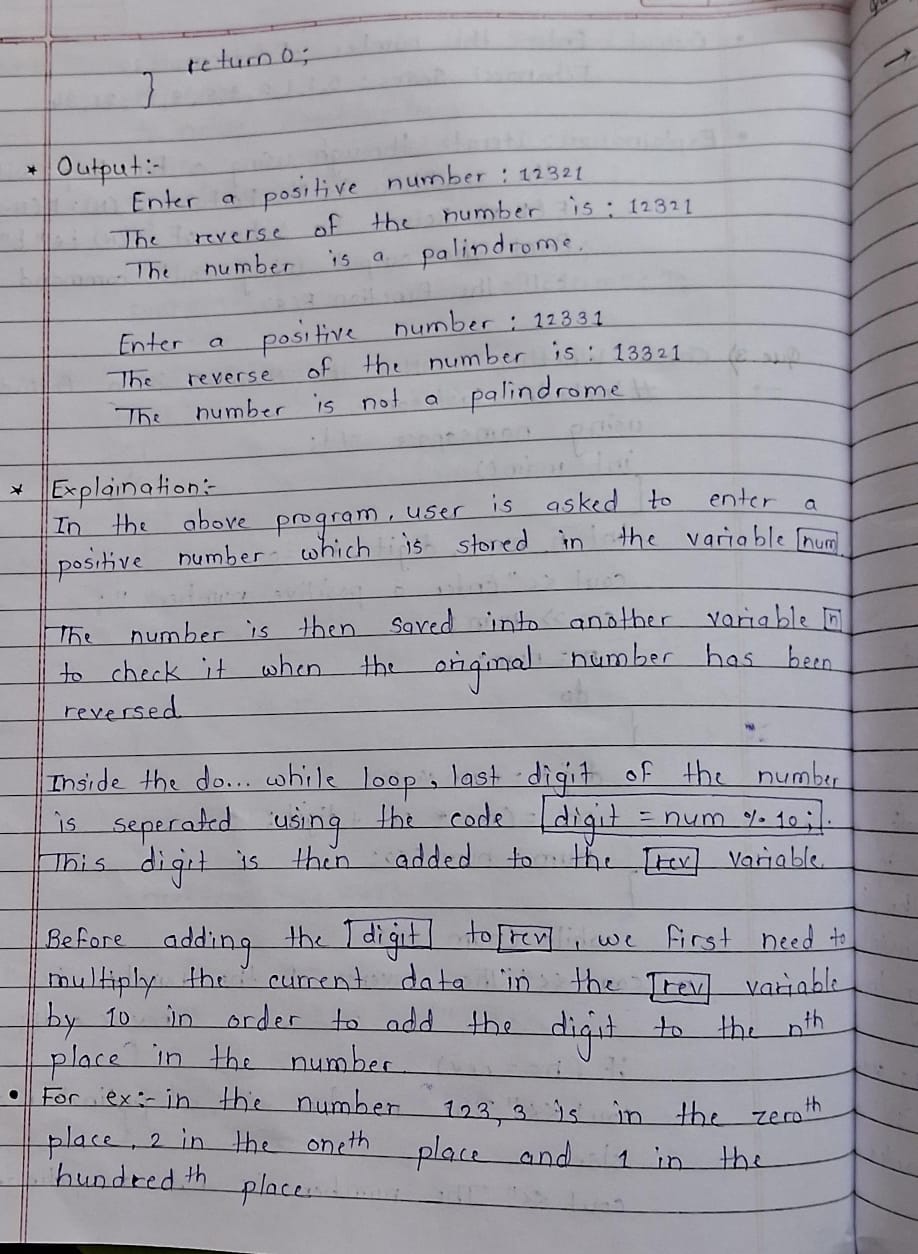 return 0;
}
* Output:-
Enter a positive number : 12321
The reverse of the number is : 12321
The number is a palindrome.
Enter a positive number : 12331
The reverse of the number is : 13321
The number is not a palindrome
* Explaination:-
In the above program, user is asked to enter a
positive number which is stored in the variable num.
The number is then saved into another variable n
to check it when the original number has been
reversed.
Inside the do... while loop, last digit of the number
is seperated using the code digit = num % 10;.
This digit is then added to the rev variable.
Before adding the digit to rev, we first need to
multiply the current data in the rev variable
by 10 in order to add the digit to the nth
place in the number.
• For ex:- in the number 123, 3 is in the zeroth
place, 2 in the oneth place and 1 in the
hundredth place.